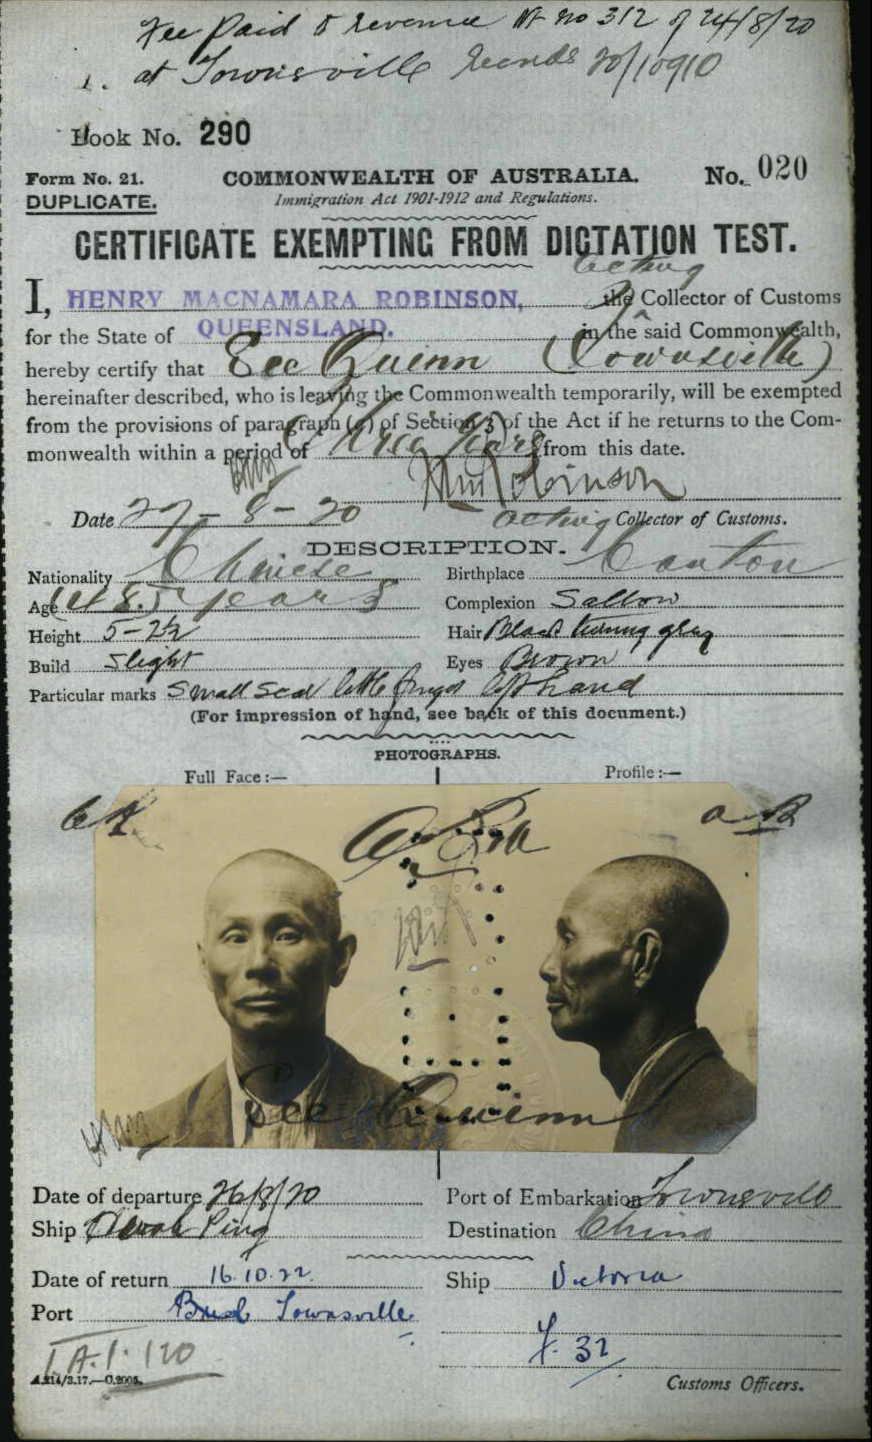 Fee Paid & revenue no 312 of 24/8/20
1. at Townsville Records 20/10910
Book No. 290
Form No. 21. COMMONWEALTH OF AUSTRALIA. No. 020
DUPLICATE. Immigration Act 1901-1912 and Regulations.
CERTIFICATE EXEMPTING FROM DICTATION TEST.
acting
I, HENRY MACNAMARA ROBINSON, the Collector of Customs
for the State of QUEENSLAND. in the said Commonwealth,
hereby certify that Gee Quinn (Townsville)
hereinafter described, who is leaving the Commonwealth temporarily, will be exempted
from the provisions of paragraph (a) of Section 3 of the Act if he returns to the Com-
monwealth within a period of Three Years from this date.
HM Robinson
Date 27-8-20 acting Collector of Customs.
DESCRIPTION.
Nationality Chinese Birthplace Canton
Age (48) years Complexion Sallow
Height 5-2½ Hair Black turning gray
Build Slight Eyes Brown
Particular marks Small scar little finger left hand
(For impression of hand, see back of this document.)
PHOTOGRAPHS.
Full Face:— Profile:—
Gee Quinn
Date of departure 26/8/20 Port of Embarkation Townsville
Ship Ping Destination China
Date of return 16.10.22. Ship Victoria
Port Townsville
F. 32
1.A.1.120
A.214/3.17.—C.2005. Customs Officers.